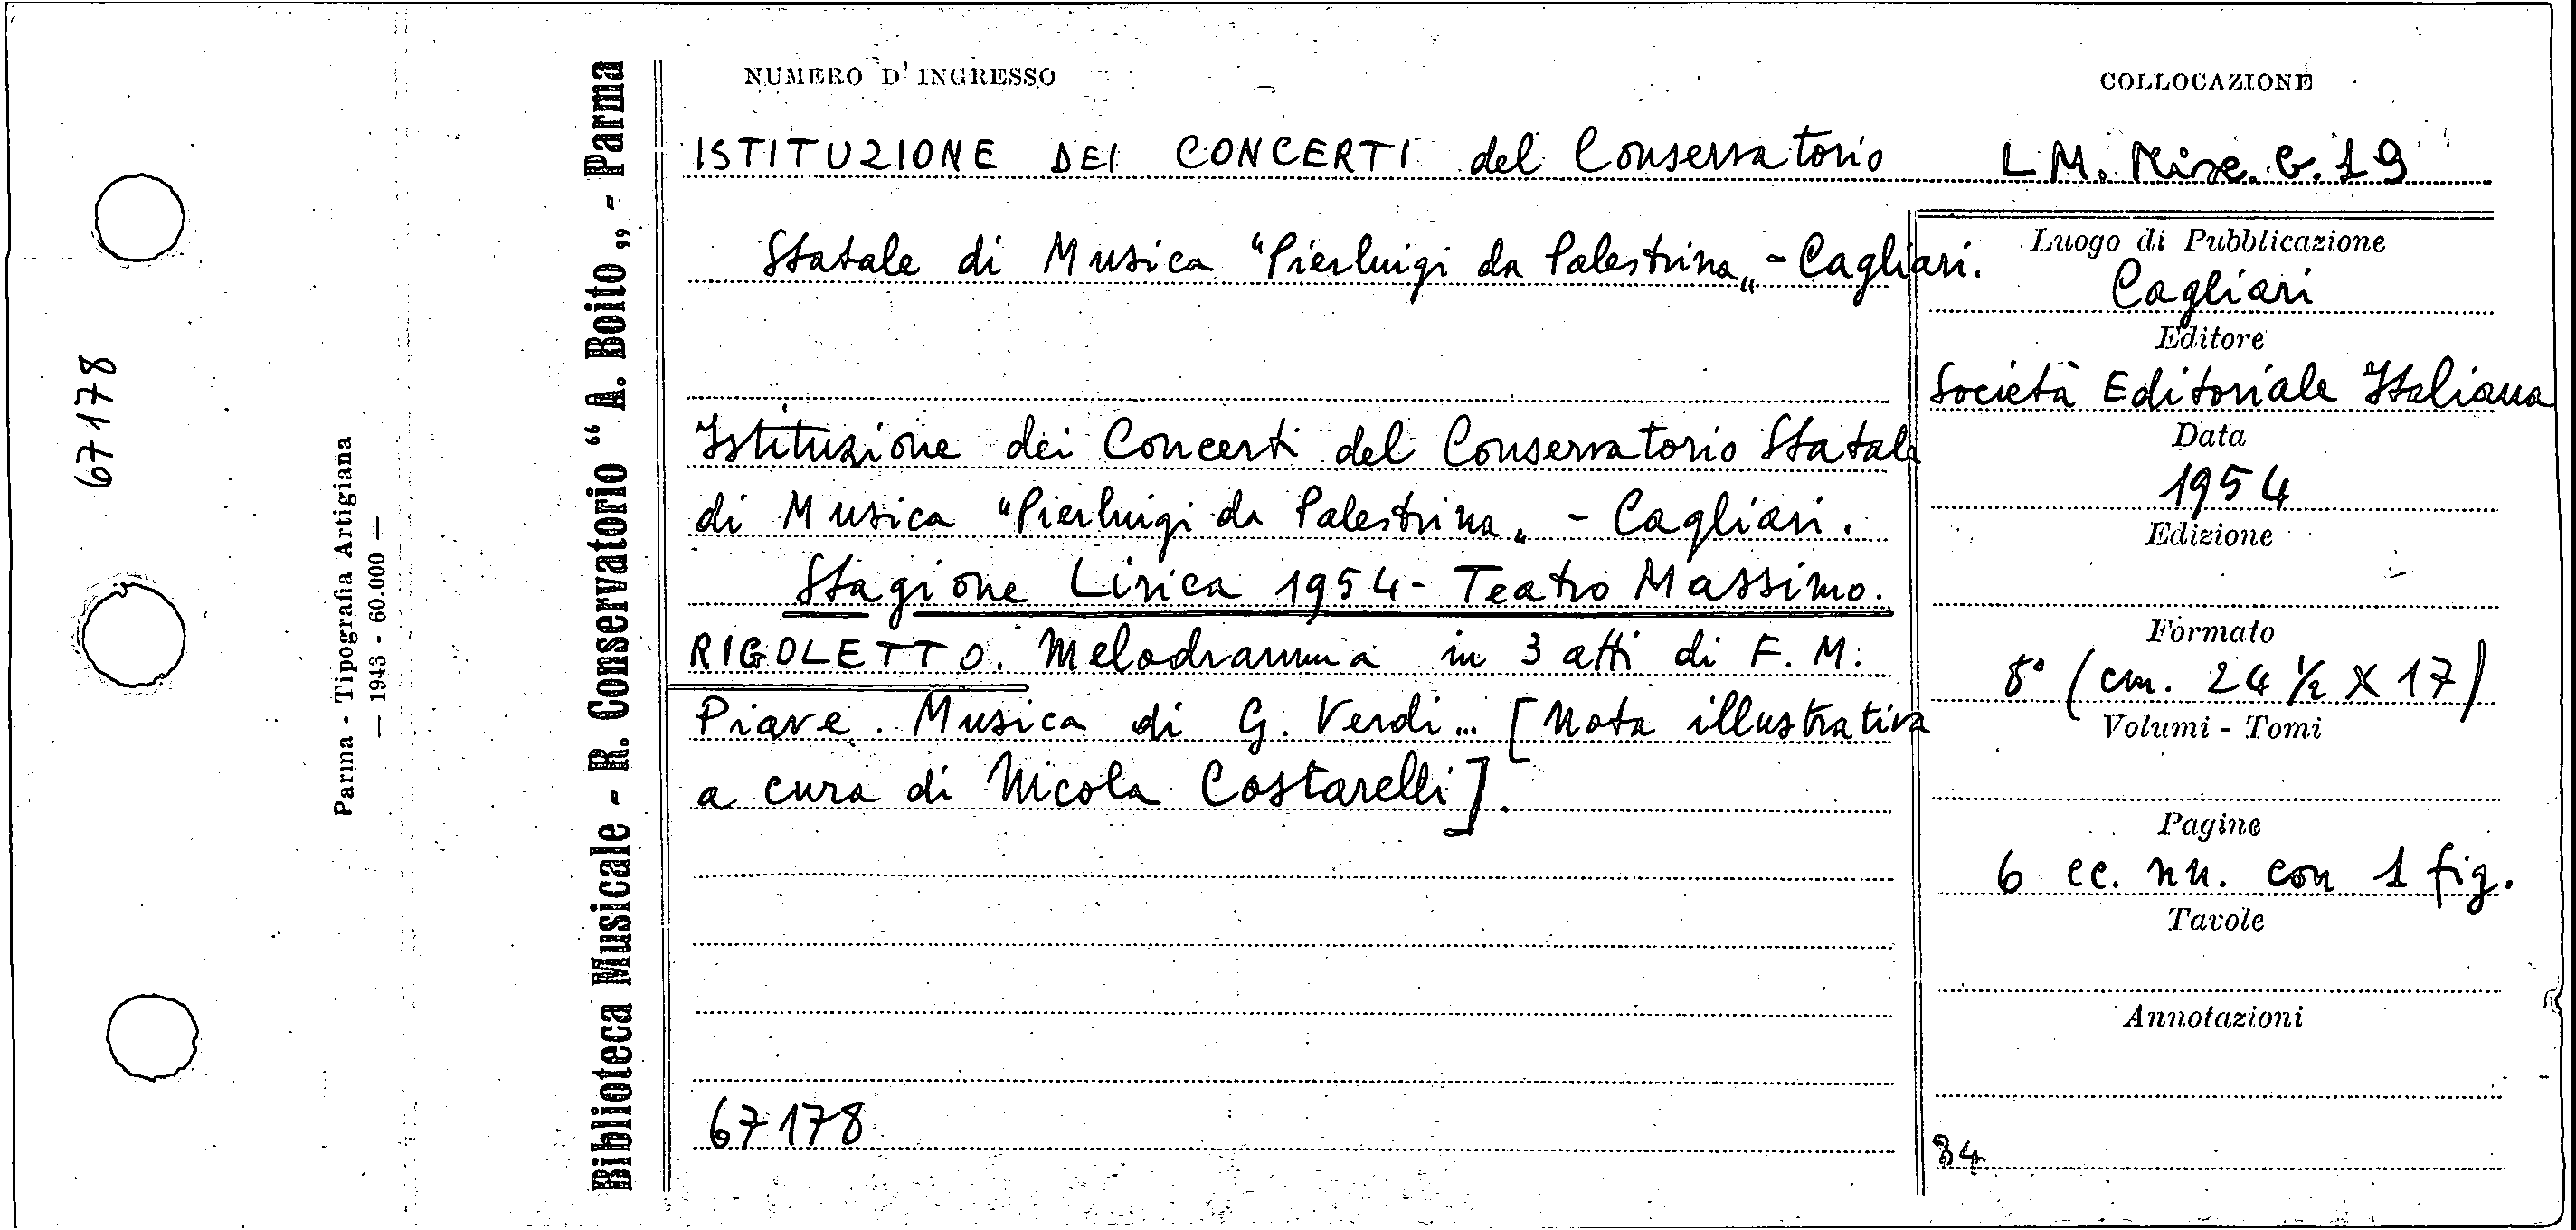 67178
Parma - Tipografia Artigiana
— 1943 - 60.000 —
Biblioteca Musicale - R. Conservatorio “ A. Boito „ - Parma
NUMERO D'INGRESSO
COLLOCAZIONE
ISTITUZIONE DEI CONCERTI del Conservatorio
L M. Misc. G. 19
Statale di Musica "Pierluigi da Palestrina„ - Cagliari.
Istituzione dei Concerti del Conservatorio Statale
di Musica "Pierluigi da Palestrina„ - Cagliari.
Stagione Lirica 1954 - Teatro Massimo.
RIGOLETTO. Melodramma in 3 atti di F. M.
Piave. Musica di G. Verdi... [Nota illustrativa
a cura di Nicola Costarelli].
67178
Luogo di Pubblicazione
Cagliari
Editore
Società Editoriale Italiana
Data
1954
Edizione
Formato
8° (cm. 24 ½ X 17)
Volumi - Tomi
Pagine
6 cc. nn. con 1 fig.
Tavole
Annotazioni
84